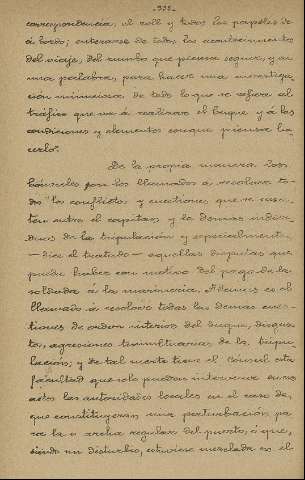 correspondencia, el roll y todos los papeles de
á bordo; enterarse de todos los acontecimientos
del viaje, del rumbo que piensa seguir, y en
una palabra, para hacer una investiga-
ción minuciosa de todo lo que se refiere al
tráfico que vá á realizar el buque y á las
condiciones y elementos conque piensa ha-
cerlo.
De la propia manera los
cónsules son los llamados á resolver to-
dos los conflictos y cuestiones que se susci-
ten entre el capitán y los demas indivi-
duos de la tripulación y especialmente
—dice el tratado— aquellas disputas que
pueda haber con motivo del pago de la
soldada á la marinería. Ademas es el
llamado á resolver todas las demas cues-
tiones de orden interior del buque, disgus-
tos, agresiones tumultuarias de la tripu-
lación; y de tal suerte tiene el cónsul esta
facultad que solo puedan intervenir en
actos las autoridades locales en el caso de
que constituyeran una perturbación pa-
ra la marcha regular del puerto, ó que,
siendo un disturbio, estuviese mezclada en él